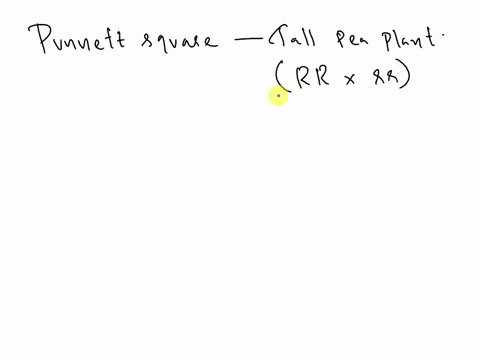 Punnett square — Tall pea plant.
(RR x rr)